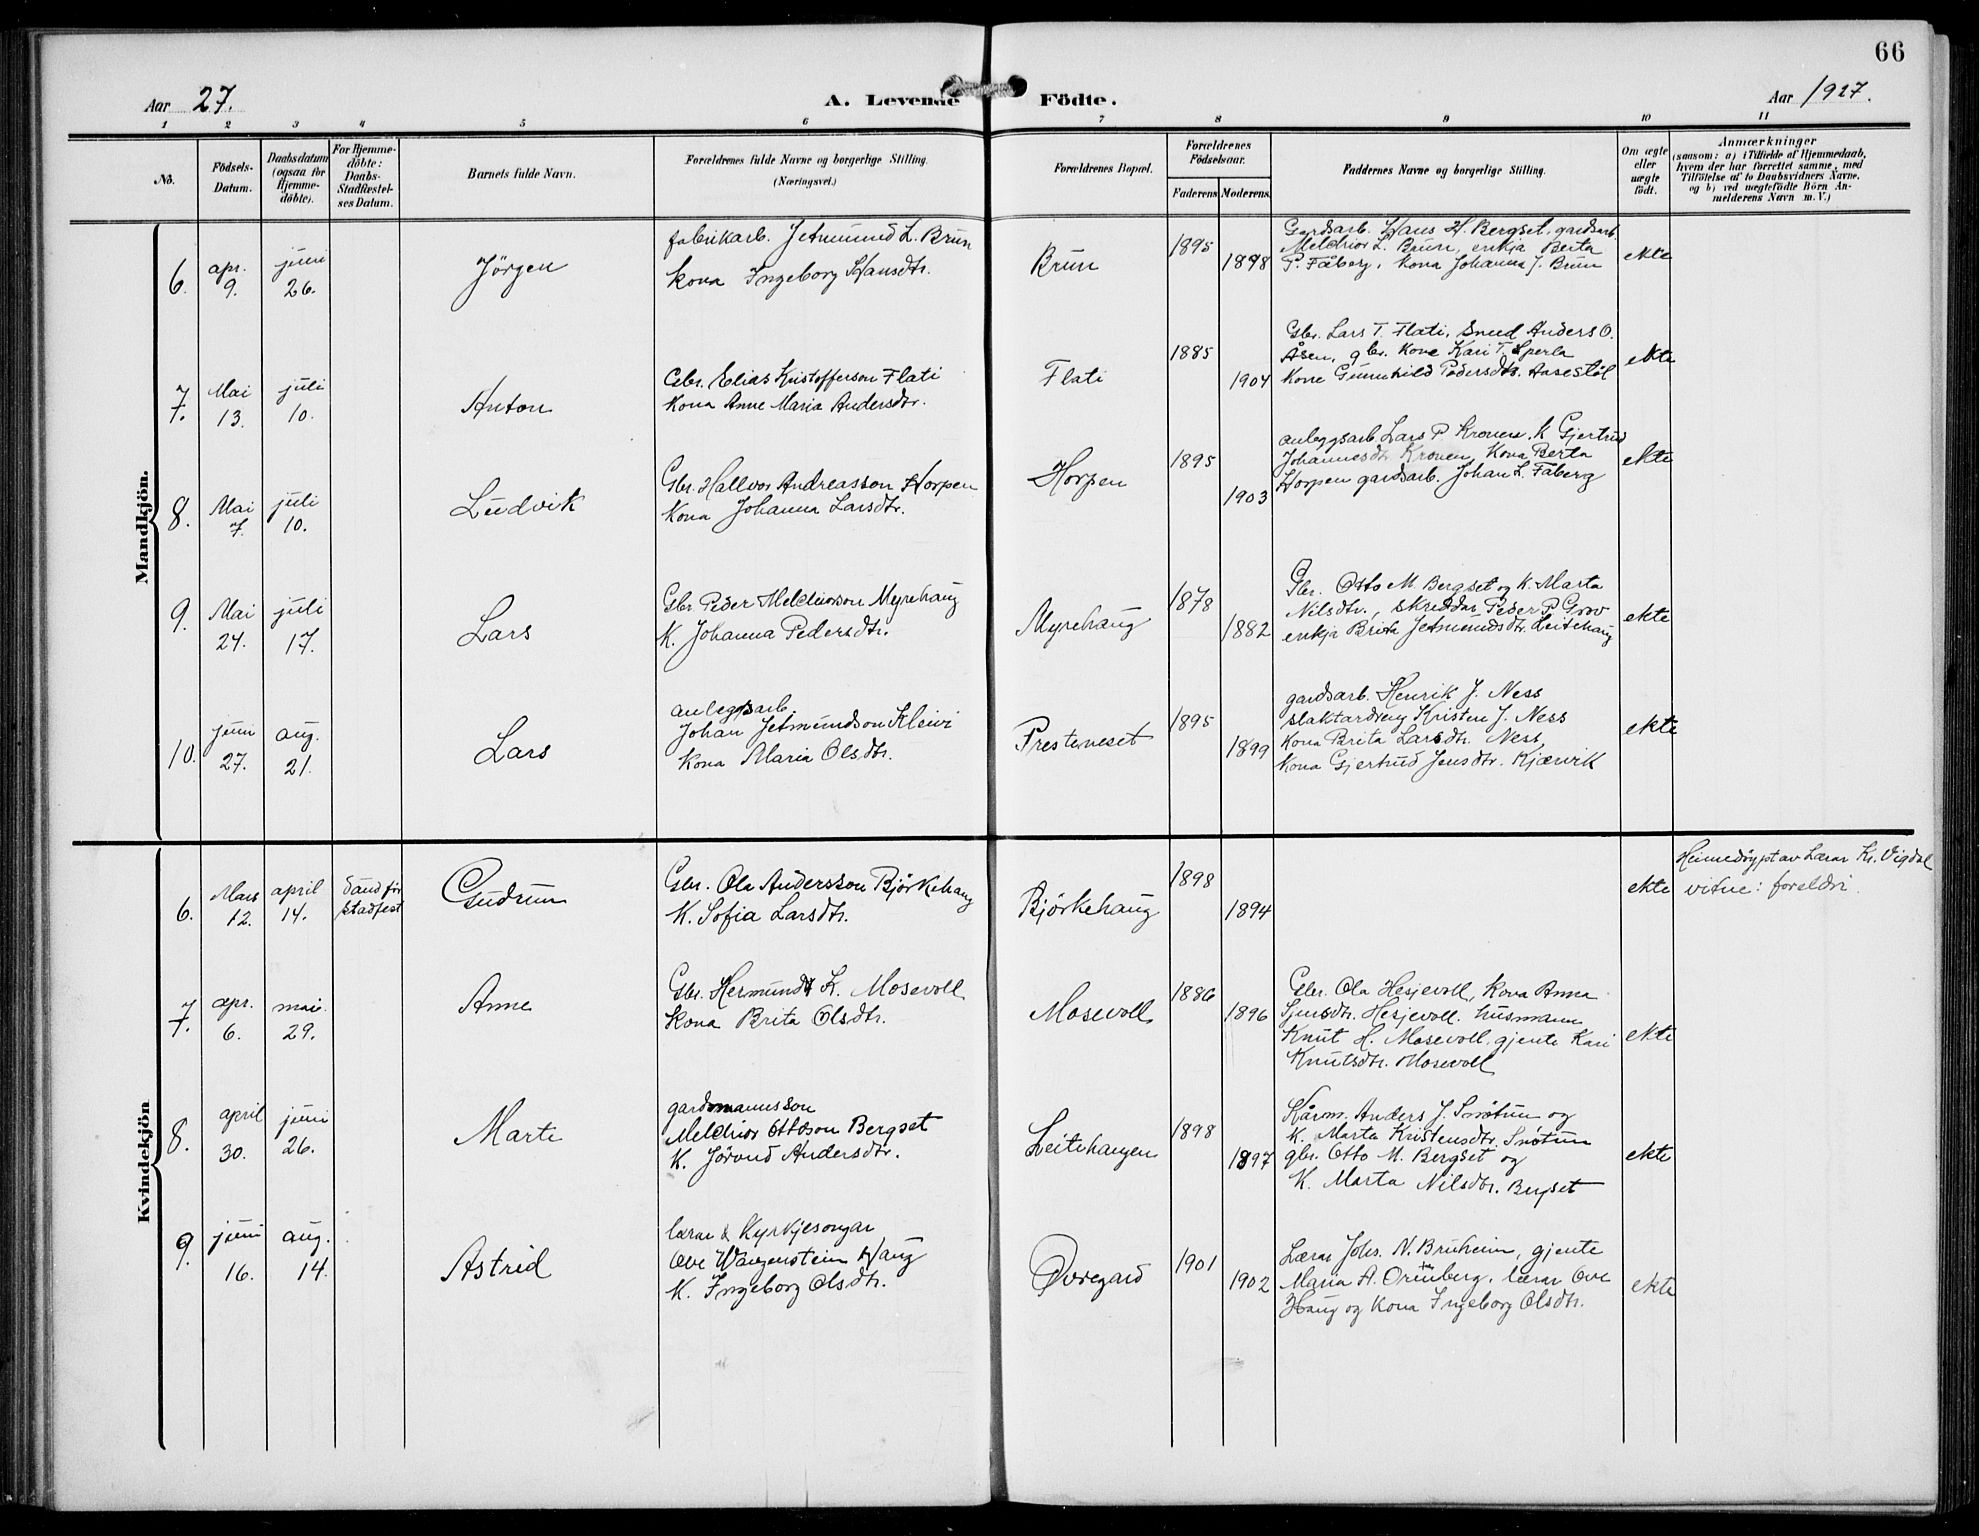 66
Aar 27.
A. Levende Födte.
Aar 1927.
1 2 3 4 5 6 7 8 9 10 11
No.
Födsels-
Datum.
Daabsdatum
(ogsaa for
Hjemme-
döbte).
For Hjemme-
döbte:
Daabs-
Stadfæstel-
ses Datum.
Barnets fulde Navn.
Forældrenes fulde Navne og borgerlige Stilling.
(Næringsvei.)
Forældrenes Bopæl.
Forældrenes
Födselsaar.
Faderens Moderens.
Faddernes Navne og borgerlige Stilling.
Om ægte
eller
uægte
födt.
Anmærkninger
(saasom: a) i Tilfælde af Hjemmedaab,
hvem der har forrettet samme, med
Tilföielse af to Daabsvidners Navne,
og b) ved uægtefödte Börn An-
melderens Navn m. V.)
Mandkjön.
6.
apr.
9.
juni
26.
Jörgen
fabrikarb. Jetmund L. Brun
kona Ingeborg Hansdtr.
Brun
1895
1898
Gardsarb. Hans H. Bergset, gardsarb.
Melchior L. Brun, enkja Berta
P. Fåberg, kona Johanna J. Brun
ekte
7.
Mai
13.
juli
10.
Anton
Gbr. Elias Kristofferson Flati
Kona Anne Maria Andersdtr.
Flati
1885
1904
Gbr. Lars T. Flati, Sned Anders O.
Åsen, gbr. kone Kari T. Sperla
Kone Gunnhild Pedersdtr. Aasestöl
ekte
8.
Mai
7.
juli
10.
Ludvik
Gbr. Hallvor Andreasson Horpen
Kona Johanna Larsdtr.
Horpen
1895
1903
anleggsarb. Lars P. Kronen, K Gjertrud
Johannesdtr Kronen, Kona Berta
Horpen gardsarb. Johan L. Fåberg
ekte
9.
Mai
24.
juli
17.
Lars
Gbr Peder Melchiorson Myrehaug
K. Johanna Pedersdtr.
Myrehaug
1878
1882
Gbr. Otto M. Bergset og K. Marta
Nilsdtr., skreddar Peder P. Grov
enkja Brita Jetmundsdtr. Leitehaug
ekte
10.
juni
27.
aug.
21.
Lars
anleggsarb.
Johan Jetmundson Kleivi
Kona Maria Olsdtr.
Presteneset
1895
1899
gardsarb. Henrik J. Ness
slaktardreng Kristen J. Ness
Kona Brita Larsdtr. Ness,
Kona Gjertrud Jensdtr. Kjærvik
ekte
Kvindekjön
6.
Mars
12.
april
14.
Sund før
stadfest
Gudrun
Gbr. Ola Andersson Björkehaug
K. Sofia Larsdtr.
Björkehaug
1898
1894
ekte
Heimedöypt av Lærar Kr. Vigdal
vitne: foreldri.
7.
apr.
6.
mai.
29.
Anne
Gbr. Hermund K. Mosevoll
Kona Brita Olsdtr.
Mosevoll
1886
1896
Gbr. Ola Hesjevoll, Kona Anna
Sjursdtr. Hesjevoll. husmann
Knut H. Mosevoll, gjente Kari
Knutsdtr. Mosevoll
ekte
8.
april
30.
juni
26.
Marte
gardmannsson
Melchior Ottoson Bergset
K. Jörond Andersdtr.
Leitehaugen
1898
1897
Kårm. Anders J. Snötun og
K. Marta Kristensdtr. Snötun
gbr. Otto M. Bergset og
K. Marta Nilsdtr. Bergset
ekte
9.
juni
16.
aug.
14.
Astrid
lærar & Kyrkjesongar
Ove Wangenstein Haug
K. Ingeborg Olsdtr.
Øvregard
1901
1902
Lærar Johs. N. Bruheim, gjente
Maria A. lærar Ove
Haug og Kona Ingeborg Olsdtr.
ekte